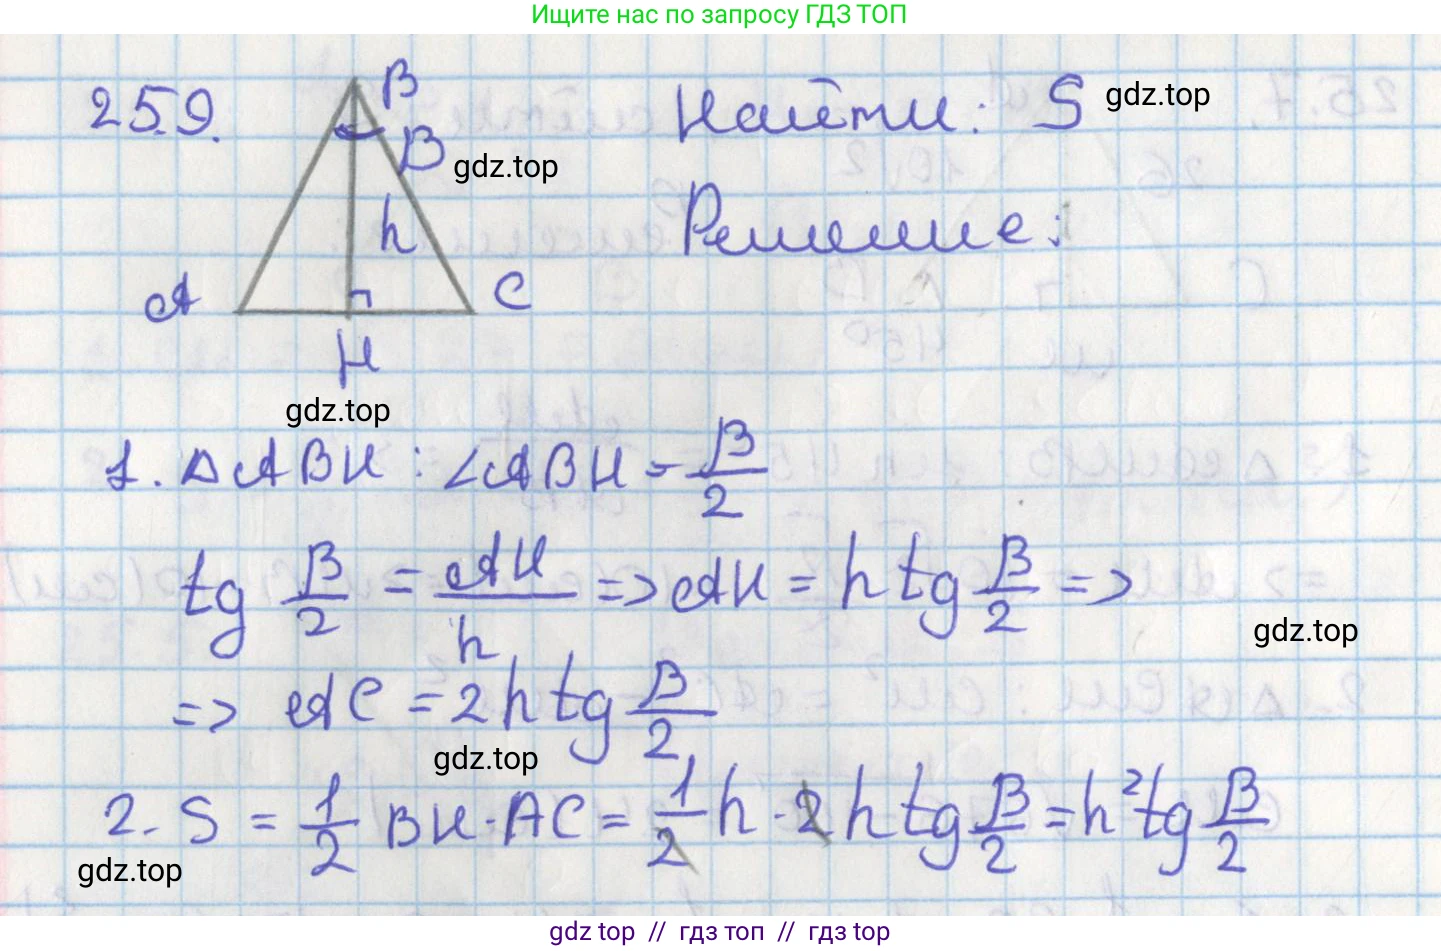 Ищите нас по запросу ГДЗ ТОП
25.9.
B
β
h
A
C
H
Найти: S
gdz.top
gdz.top
Решение:
gdz.top
1. ΔABH: ∠ABH = β/2
tg β/2 = AH/h => AH = h tg β/2 =>
gdz.top
=> AC = 2h tg β/2
gdz.top
2. S = 1/2 BH · AC = 1/2 h · 2 h tg β/2 = h² tg β/2
gdz.top
gdz top // гдз топ // гдз top